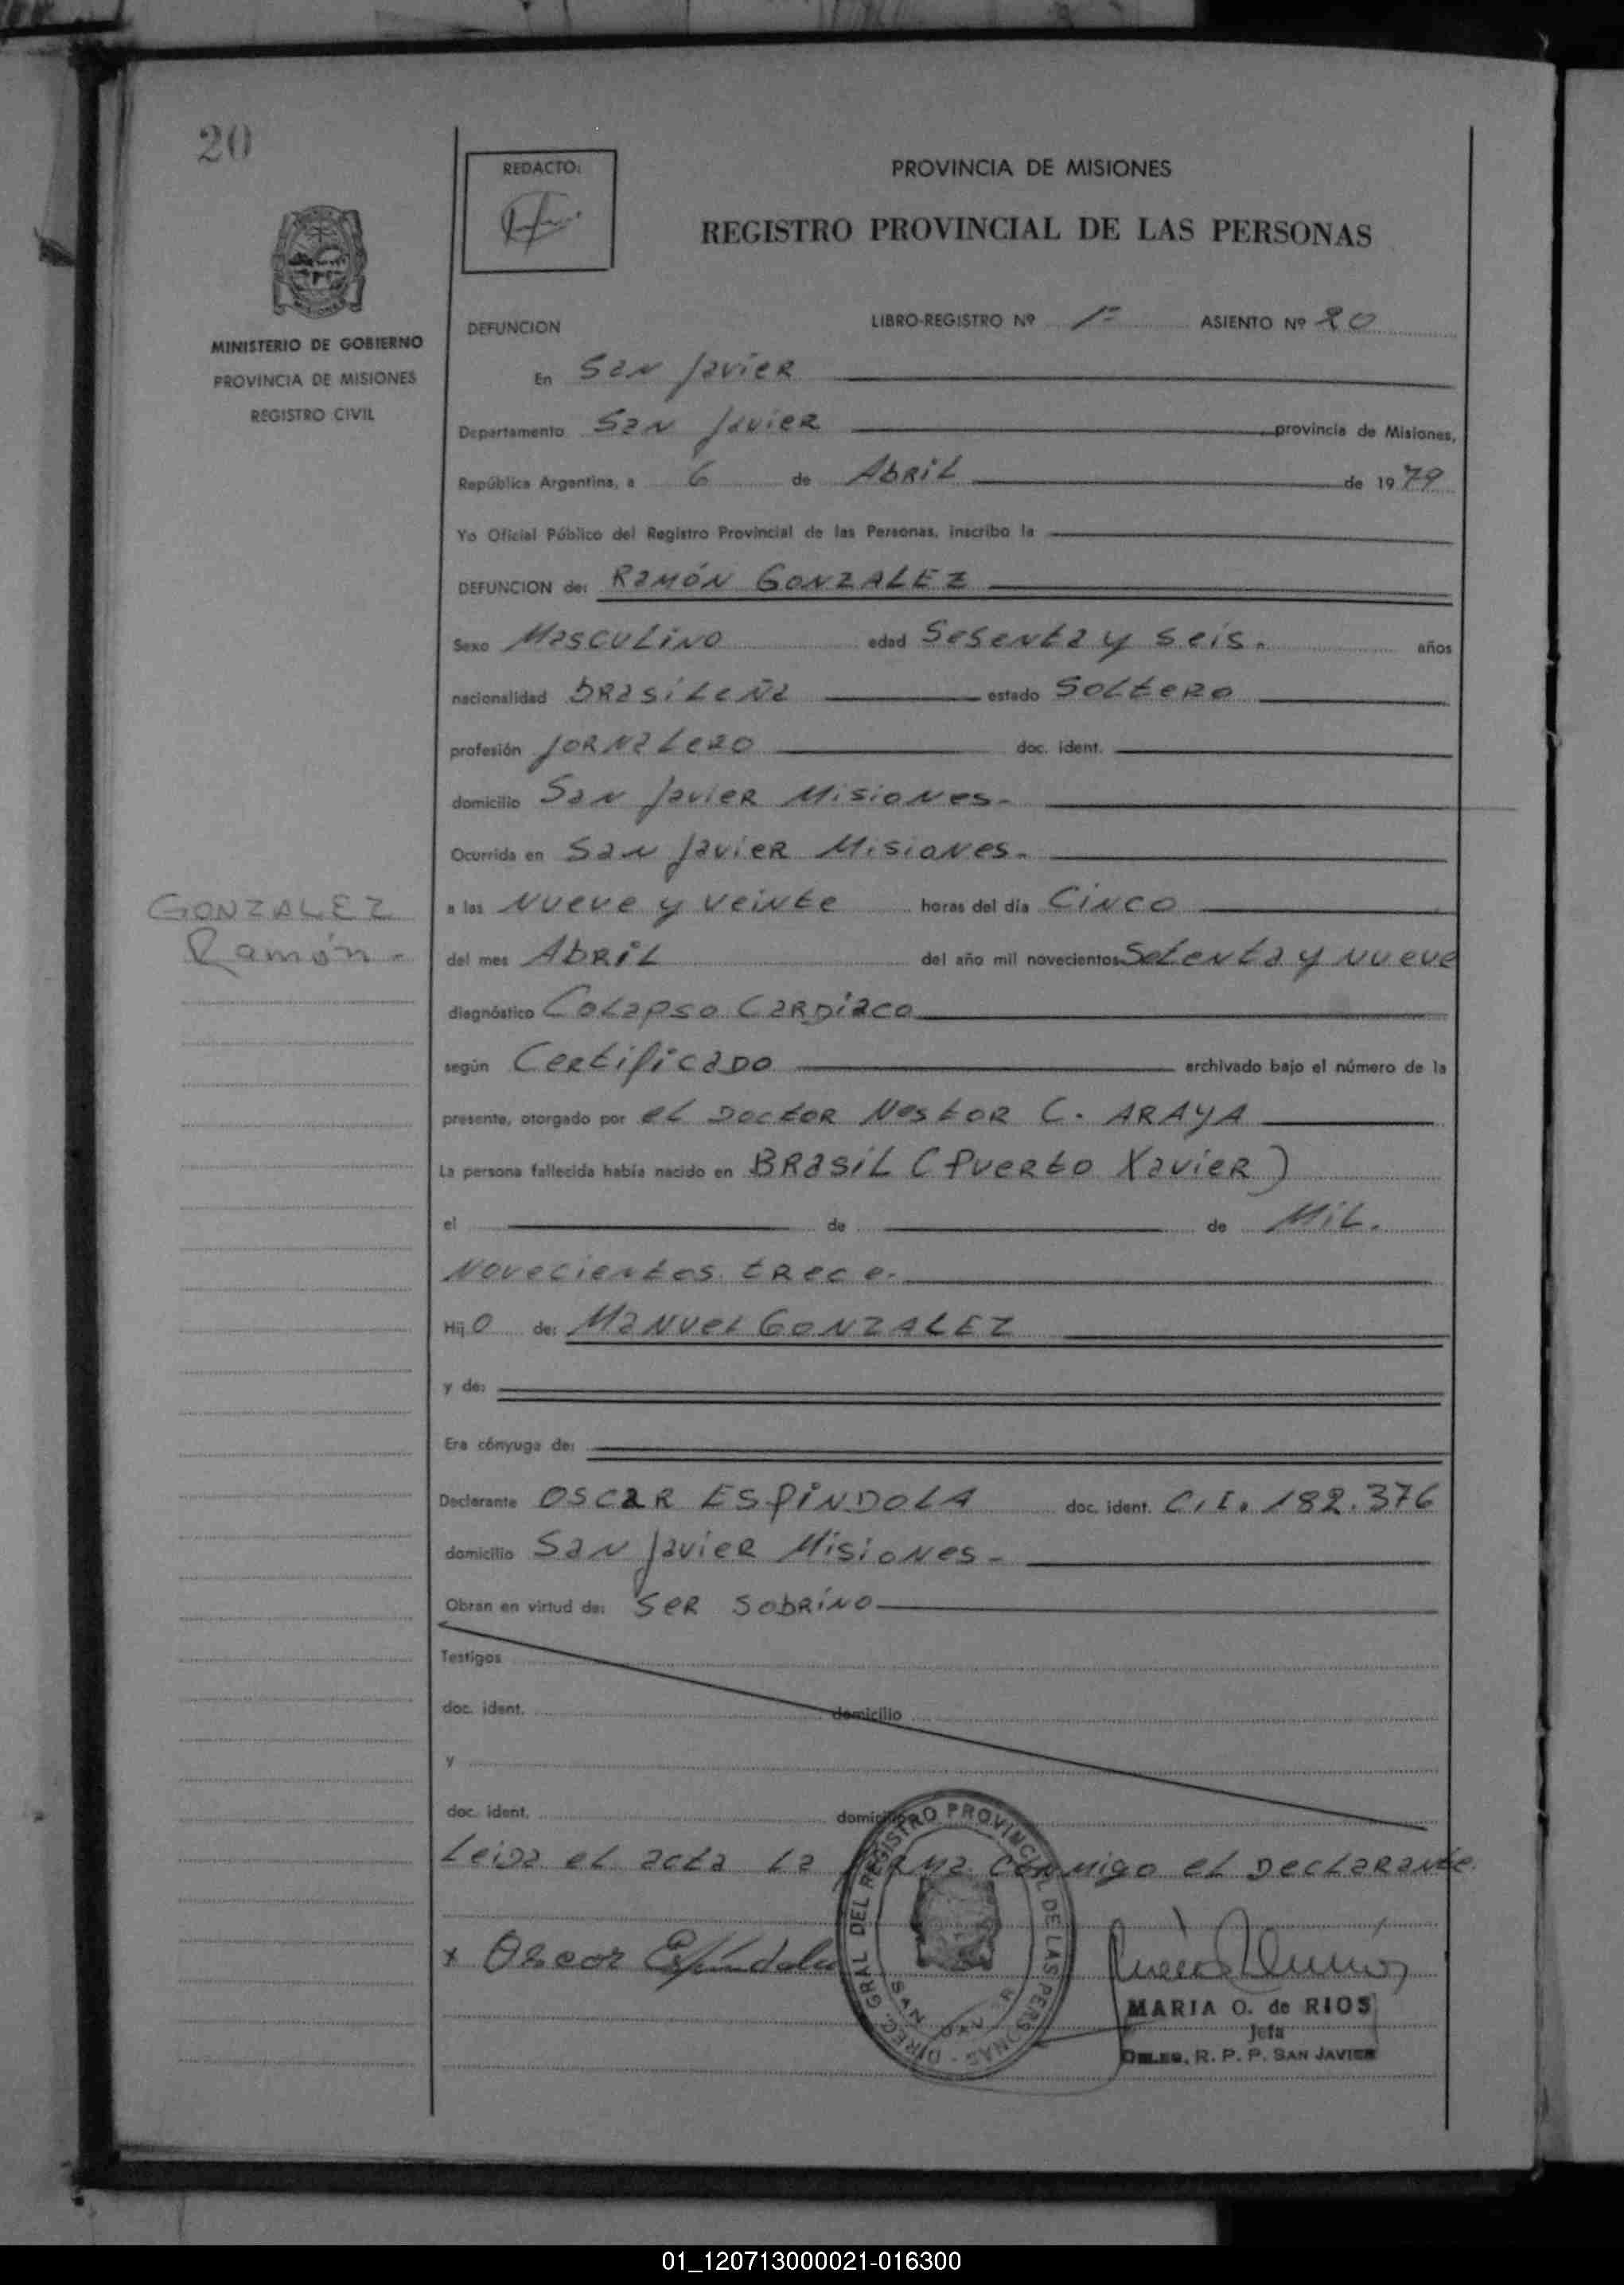 20
REDACTO:
PROVINCIA DE MISIONES
REGISTRO PROVINCIAL DE LAS PERSONAS
MINISTERIO DE GOBIERNO
PROVINCIA DE MISIONES
REGISTRO CIVIL
DEFUNCION LIBRO-REGISTRO Nº 1º ASIENTO Nº 20
En San Javier
Departamento San Javier provincia de Misiones,
República Argentina, a 6 de Abril de 1979
Yo Oficial Público del Registro Provincial de las Personas, inscribo la
DEFUNCION de: Ramón GONZALEZ
Sexo Masculino edad Sesenta y seis. años
nacionalidad brasileña estado Soltero
profesión jornalero doc. ident.
domicilio San Javier Misiones.
Ocurrida en San Javier Misiones.
GONZALEZ
Ramón.
a las Nueve y veinte horas del día Cinco
del mes Abril del año mil novecientos Setenta y nueve
diagnóstico Colapso Cardiaco
según Certificado archivado bajo el número de la
presente, otorgado por el Doctor Nestor C. ARAYA
La persona fallecida había nacido en BRasil (Puerto Xavier)
el de de Mil.
Novecientos trece.
Hijo de: Manuel GONZALEZ
y de:
Era cónyuge de:
Declarante OSCAR ESPINDOLA doc. ident. C.I. 182.376
domicilio San Javier Misiones.
Obran en virtud de: Ser sobrino
Testigos
doc. ident. domicilio
y
doc. ident. domicilio
Leida el acta la firma conmigo el declarante.
x Oscar Espíndola
DIREC. GRAL DEL REGISTRO PROVINCIAL DE LAS PERSONAS - SAN JAVIER
MARIA O. de RIOS
Jefa
DELEG. R. P. P. SAN JAVIER
01_120713000021-016300